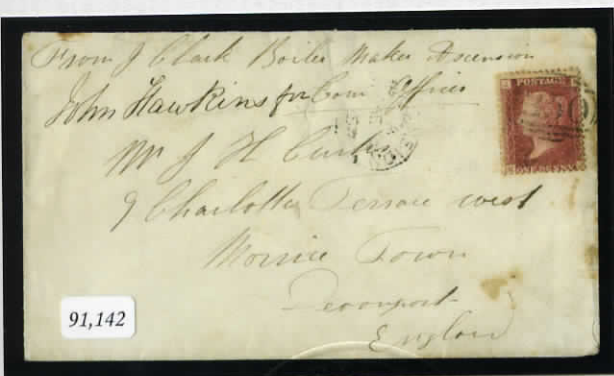 From J Clark Boiler Maker Ascension
John Hawkins for Com Officer
Mr J H Curtis
9 Charlotte Terrace west
Morrice Town
Devonport
England
POSTAGE
ONE PENNY
91,142